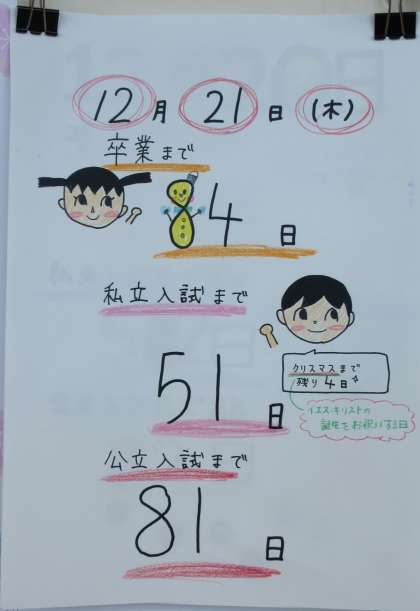 12月21日(木)
卒業まで
84日
私立入試まで
51日
クリスマスまで
残り4日
イエス・キリストの
誕生をお祝いする日
公立入試まで
81日